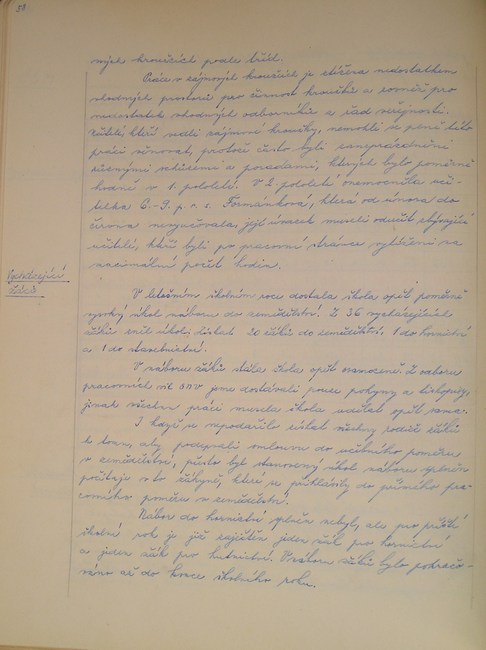 58.
ných kroužcích podle tříd.
Práce v zájmových kroužcích je ztížena nedostatkem
vhodných prostorů pro činnost kroužků a rovněž pro
nedostatek vhodných odborníků z řad veřejnosti.
Učitelé, kteří vedli zájmové kroužky, nemohli se plně této
práci věnovat, protože často byli zaneprázdněni
různými schůzemi a poradami, kterých bylo poměrně
hodně v 1. pololetí. V 2. pololetí onemocněla uči-
telka Formánková, která od února do
června nevyučovala, její úvazek museli odučit zbývající
učitelé, kteří byli po pracovní stránce vytíženi na
maximální počet hodin.
Vycházející
žáci
V letošním školním roce dostala škola opět poměrně
vysoký úkol náboru do zemědělství. Z 36 vycházejících
žáků zněl úkol, získat 20 žáků do zemědělství, 1 do hornictví
a 1 do stavebnictví.
V náboru žáků stála škola opět osamoceně. Z odboru
pracovních sil ONV jsme dostávali pouze pokyny a
jinak všechnu práci musela škola udělat opět sama.
I když se nepodařilo získat všechny rodiče žáků
k tomu, aby podepsali smlouvu do učebního poměru
v zemědělství, přesto byl stanovený úkol náboru splněn
počítaje v to žákyně, které se přihlásily do přímého pra-
covního poměru v zemědělství.
Nábor do hornictví splněn nebyl, ale pro příští
školní rok je již zajištěn jeden žák pro hornictví
a jeden žák pro hutnictví. V náboru žáků bylo pokračo-
váno až do konce školního roku.